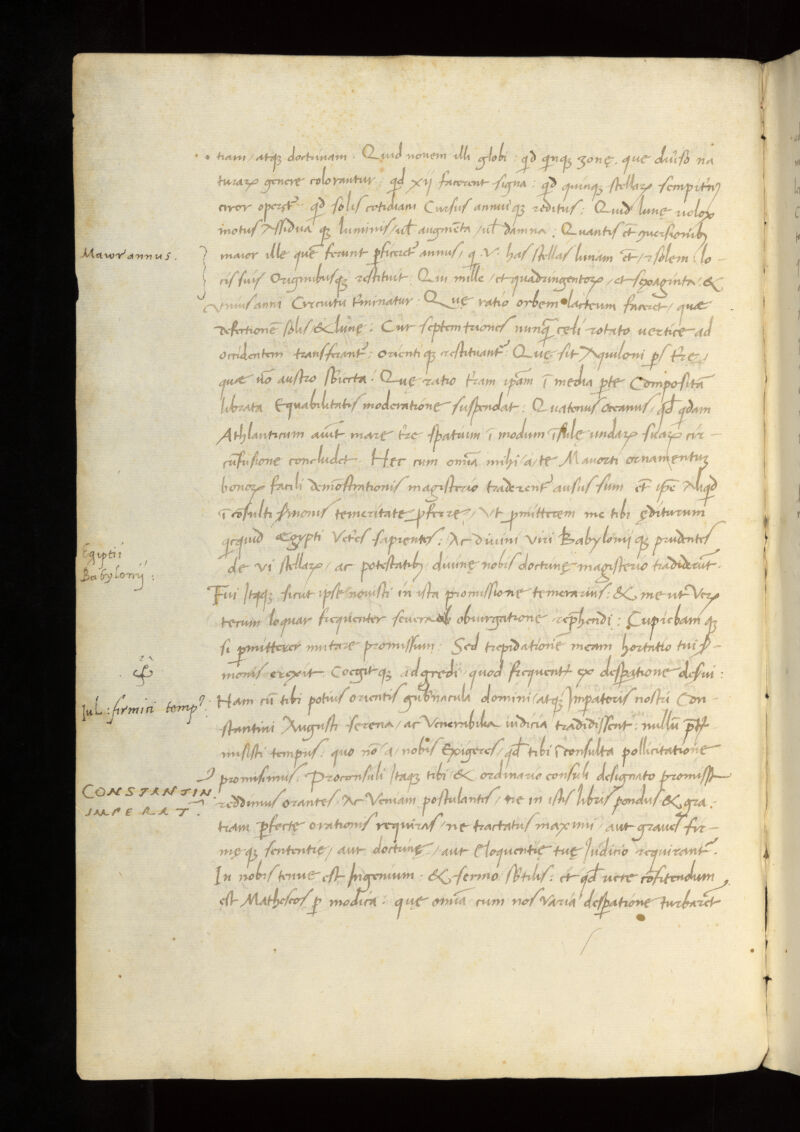 tiam / atq; doctrinam . Quid nonem illi globi : qd qnq; zonę . que diuso na
turaꝝ genere colorantur : qd xij facerent signa : qd quinq; stellaꝝ sempitn9
error operet~ qd solis cotidiani Cursus annui q; reditus : Quid lunę uelox
motus Assidua q; luminis / ul augmēta / ul damna : Quantis et guersionib9
Maior annus .
maior ille quē ferunt ꝑficeret annus / q . V . has stellas lunam et / solem lo-
cis suis Originibusq; restituit . Qui mille / et quadringentoꝝ / et sexaginta : &
Vnius anni Circuitu tminatur . Quę ratio orbem lacteum faceret / quae
defectionē solis & lunę : Cur septemtriones nunq̄ celi rotato uertice ad
occidentem transferant~ : orienti q; restituant~ : Quę sit Aquiloni ꝑs trę /
quae nō austro sbiecta . Quę ratio tram ipam ī media ꝑte Compositā
librata Equabilitatis moderatione suspendat : Quatenus oceanus / qd qdam
Athlanticum aiūt mare tre spatium ī modum īsulę undaꝝ suaꝝ cir-
cūfusione concludet . Hec cum omīa mihi / a / te Mauorti ornamentuȝ
bonoꝝ facili demōstrationis magisterio traderent~ ausus sum et ipe Aliqd
ī cōsulti smonis temeritate ꝑferre / Vt ꝑmitterem me tibi ęditurum
Egiptii
Babylonij :
qcquid Aegypti Vetes sapientes : Ac diuini Viri Babylonij q; prudentes
de vi stellaꝝ / ac potestatib9 diuinę nobis doctrinę magisterio tradidert .
Fui Itaq; sicut ipse nouisti in ista promissione temerarius : & me ut Veꝝ
tecum loquar frequenter seuera obiurgatione rephendi : Cupiebam q;
si ꝑmitterer mutare promissum . Sed trepidatione meam hortatio tui s-
monis erexit . Coegit q; adgredi / quod frequent~ ex despatione deserui :
Iul : firmici temp9 .
Nam cū tibi potius orientis gubnacula domini / atq; Imperatoris nostri Con
stantini Augusti serena / ac Venerabilia iudicia tradidissent : nullū prt
misisti tempus : quo nō / a / nobis Exigeres / qd tibi īconsulta pollicitatione
CONSTANTIN
IMPERAT .
promisimus . Proconsuli Itaq; tibi / & ordinario consuli designato promissa
reddimus orantes / Ac Veniam postulantes / ne in istis libris pondus & gra .
tiam ꝑfectę orationis requiras / ne tractatus maximi / aut graues fir-
mę q; sententię / aut doctrinę / aut Eloquentię tuę Iudicio requirant~ .
In nobis tenue est Ingenium : & sermo sbtilis : et qd uere cōfitendum
est Matheseos ꝑ modica : quę omīa cum nos uaria despatione turbaret